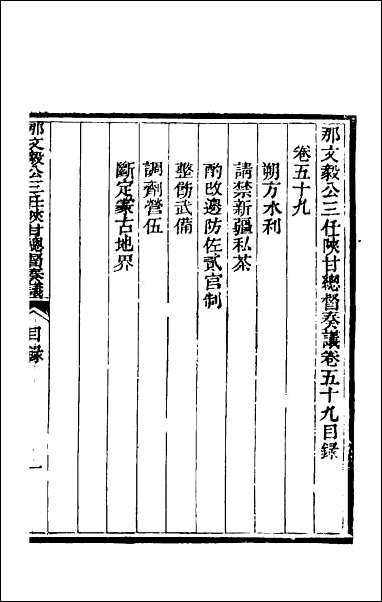 那文毅公三任陝甘總督奏議卷五十九目錄
卷五十九
朔方水利
請禁新疆私茶
酌改邊防佐貳官制
整飭武備
調劑營伍
斷定蒙古地界
那文毅公三任陝甘總督奏議
目錄
一